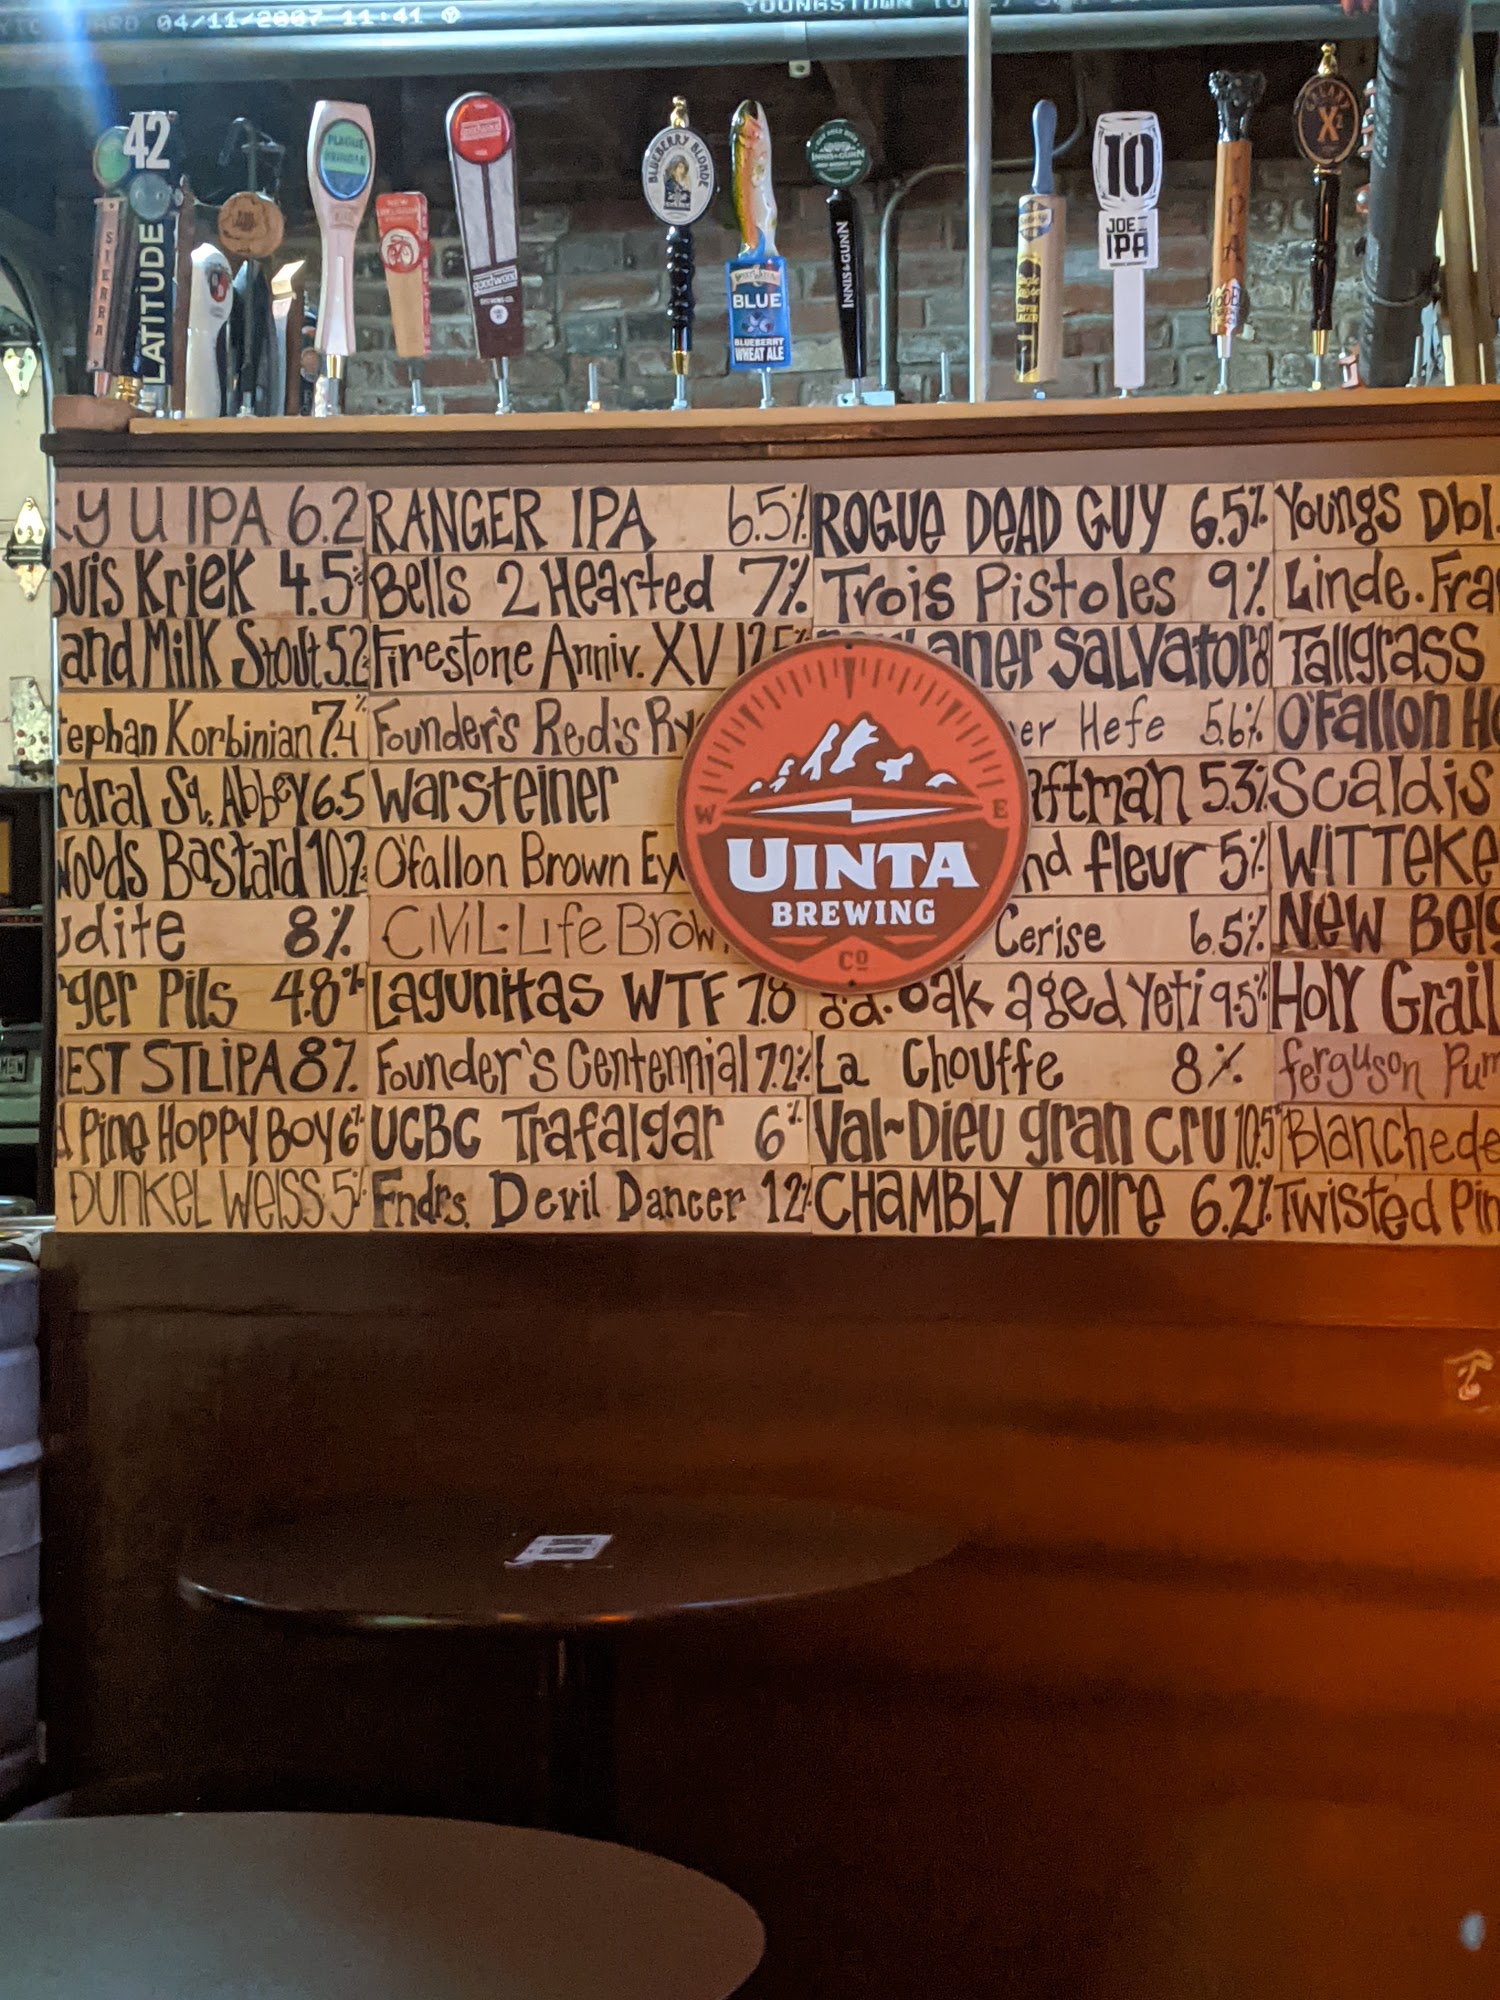 04/11/2007 11:41
YOUNGSTOWN
42
LATITUDE
SIERRA
PLAGUE
goodwood
BLUEBERRY BLONDE
BLUE
BLUEBERRY
WHEAT ALE
INNIS & GUNN
INNIS & GUNN
LAGER
10
JOE
IPA
IPA
GALAXY
X2
Y U IPA 6.2
RANGER IPA 6.5%
ROGUE DEAD GUY 6.5%
Youngs Dbl.
Kriek 4.5%
Bells 2 Hearted 7%
Trois Pistoles 9%
Linde. Fra
and Milk Stout 5.2%
Firestone Anniv. XV 12.5%
aner Salvator 8
Tallgrass
tephan Korbinian 7.4%
Founder's Red's Ry
er Hefe 5.6%
O'Fallon H
dral Sq. Abbey 6.5
Warsteiner
ftman 5.3%
Scaldis
Woods Bastard 10.2%
O'fallon Brown Ey
nd fleur 5%
WITTEKE
udite 8%
CiViL-Life Brow
Cerise 6.5%
New Belg
ger Pils 4.8%
Lagunitas WTF 7.8
oak aged Yeti 9.5%
Holy Grail
EST STL IPA 8%
Founder's Centennial 7.2%
La Chouffe 8%
ferguson Pum
Pine Hoppy Boy 6%
UCBC Trafalgar 6%
Val~Dieu gran cru 10.5%
Blanche de
DUNKEL WEISS 5%
Fndrs. Devil Dancer 12%
CHAMBLY NOIRE 6.2%
Twisted Pin
W E
UINTA
BREWING
CO